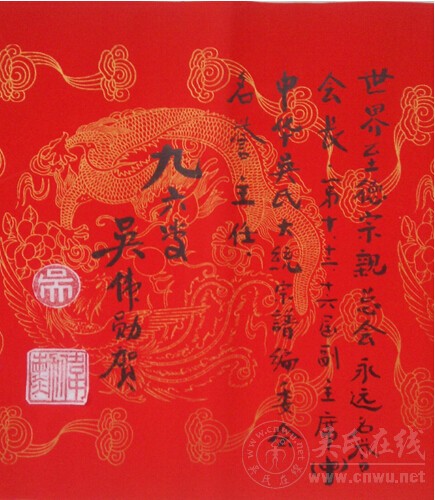 世界至德宗親总会永远名誉
会长第十、十三十六届副主席
中华吴氏大统宗谱编委会
名誉主任.
九六叟
吴伟勋贺
吴
吴氏在线
www.cnwu.net